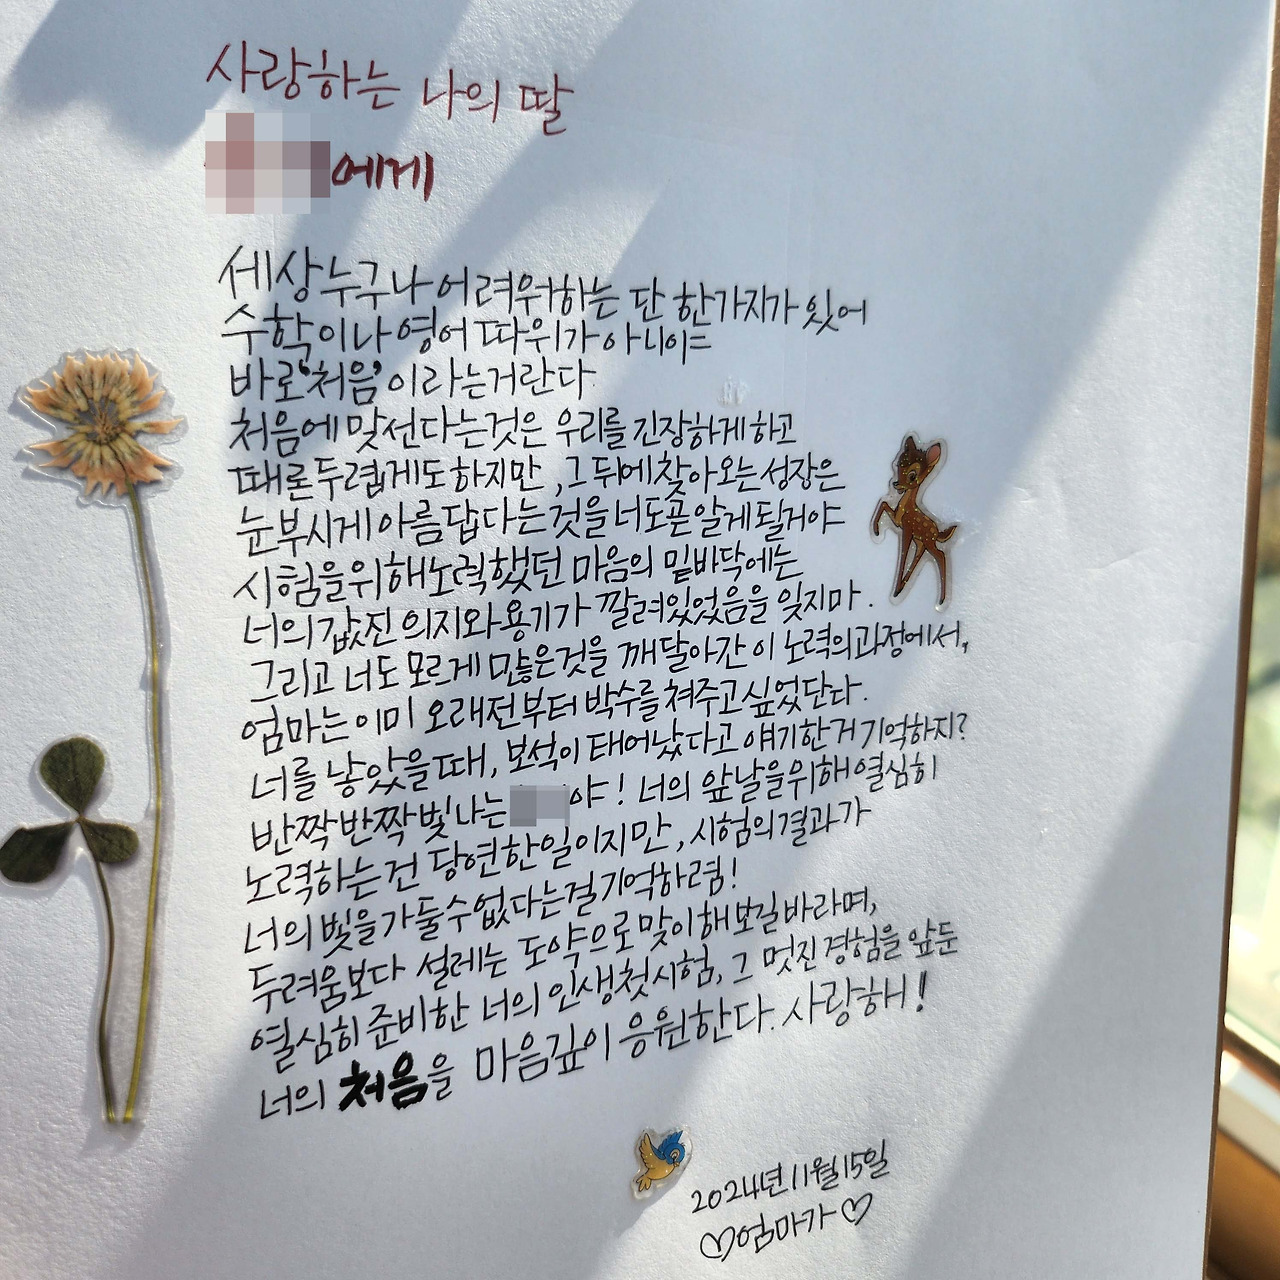 사랑하는 나의 딸
에게
세상 누구나 어려워하는 단 한가지가 있어
수학이나 영어 따위가 아니야
바로 '처음' 이라는거란다
처음에 맞선다는것은 우리를 긴장하게하고
때론 두렵게도 하지만, 그 뒤에 찾아오는 성장은
눈부시게 아름답다는것을 너도 곧 알게 될거야
시험을위해 노력했던 마음의 밑바닥에는
너의 값진 의지와 용기가 깔려있었음을 잊지마.
그리고 너도 모르게 많은것을 깨달아간 이 노력의 과정에서,
엄마는 이미 오래전부터 박수를 쳐주고 싶었단다.
너를 낳았을때, 보석이 태어났다고 얘기한거 기억하지?
반짝반짝 빛나는 야! 너의 앞날을위해 열심히
노력하는건 당연한일이지만, 시험의결과가
너의 빛을 가둘수없다는걸 기억하렴!
두려움보다 설레는 도약으로 맞이해보길 바라며,
열심히 준비한 너의 인생 첫시험, 그 멋진 경험을 앞둔
너의 처음을 마음깊이 응원한다. 사랑해!
2024년 11월 15일
♡엄마가♡